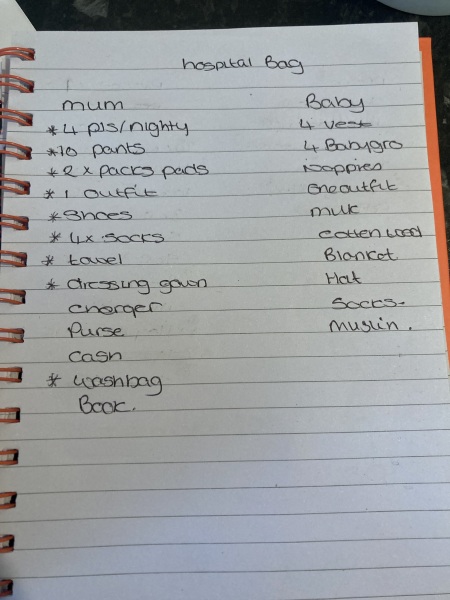 hospital Bag
mum
*4 pjs/nighty
*10 pants
*2 x packs pads
* 1 outfit
*Shoes
* 4x socks
* towel
* dressing gown
charger
Purse
cash
* washbag
Book.
Baby
4 vest
4 Babygro
Nappies
One outfit
milk
cotten wool
Blanket
Hat
Socks.
Muslin.